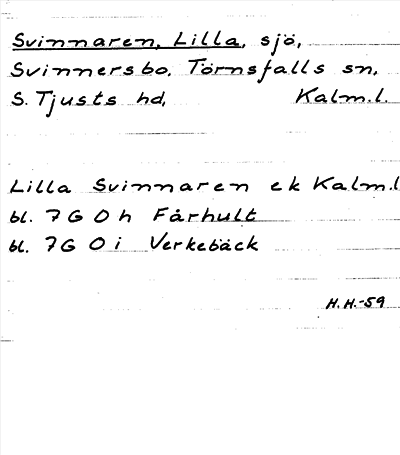 Svinnaren, Lilla, sjö,
Svinnersbo, Törnsfalls sn,
S. Tjusts hd, Kalm.l.
Lilla Svinnaren ek Kalm.l
bl. 7 G 0 h Fårhult
bl. 7G 0 i Verkebäck
H.H.-59